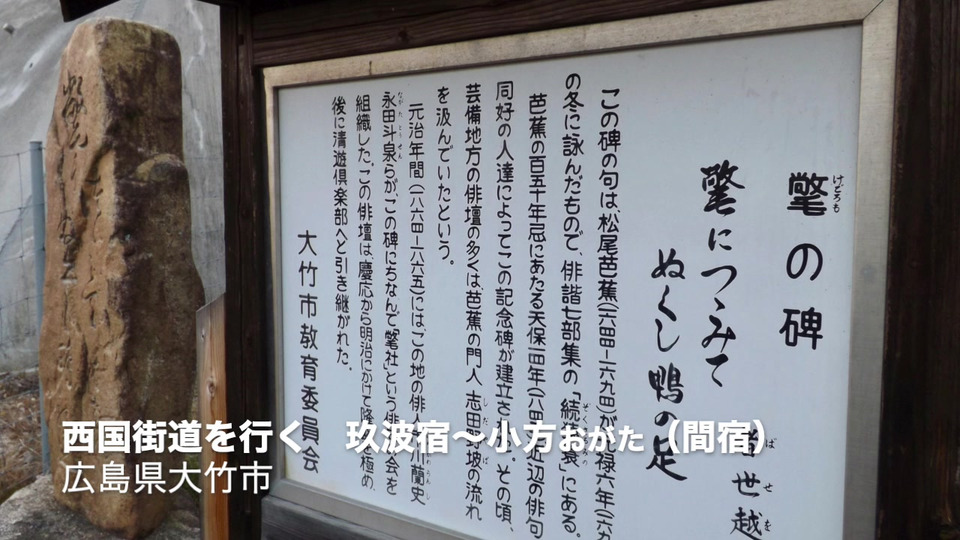 毳の碑
けごろも
毳につゝみて
ぬくし鴨の足
世越
ばせを
この碑の句は、松尾芭蕉(一六四四ー一六九四)が元禄六年(一六
の冬に詠んだもので、俳諧七部集の「続
にある。
芭蕉の百五十年忌にあたる天保一四年(一八四
近辺の俳句
同好の人達によってこの記念碑が建立さ
。その頃、
芸備地方の俳壇の多くは、芭蕉の門人 志田野坡の流れ
しだ
ば
を汲んでいたという。
元治年間(一八六四ー一八六五)には、この地の俳人
蘭史
永田斗泉らが、この碑にちなんで「毳社」という俳
会を
ながたとうせん
組織した。この俳壇は、慶応から明治にかけて隆
を極め、
後に清遊倶楽部へと引き継がれた。
大竹市教育委員会
西国街道を行く 玖波宿〜小方おがた（間宿）
広島県大竹市